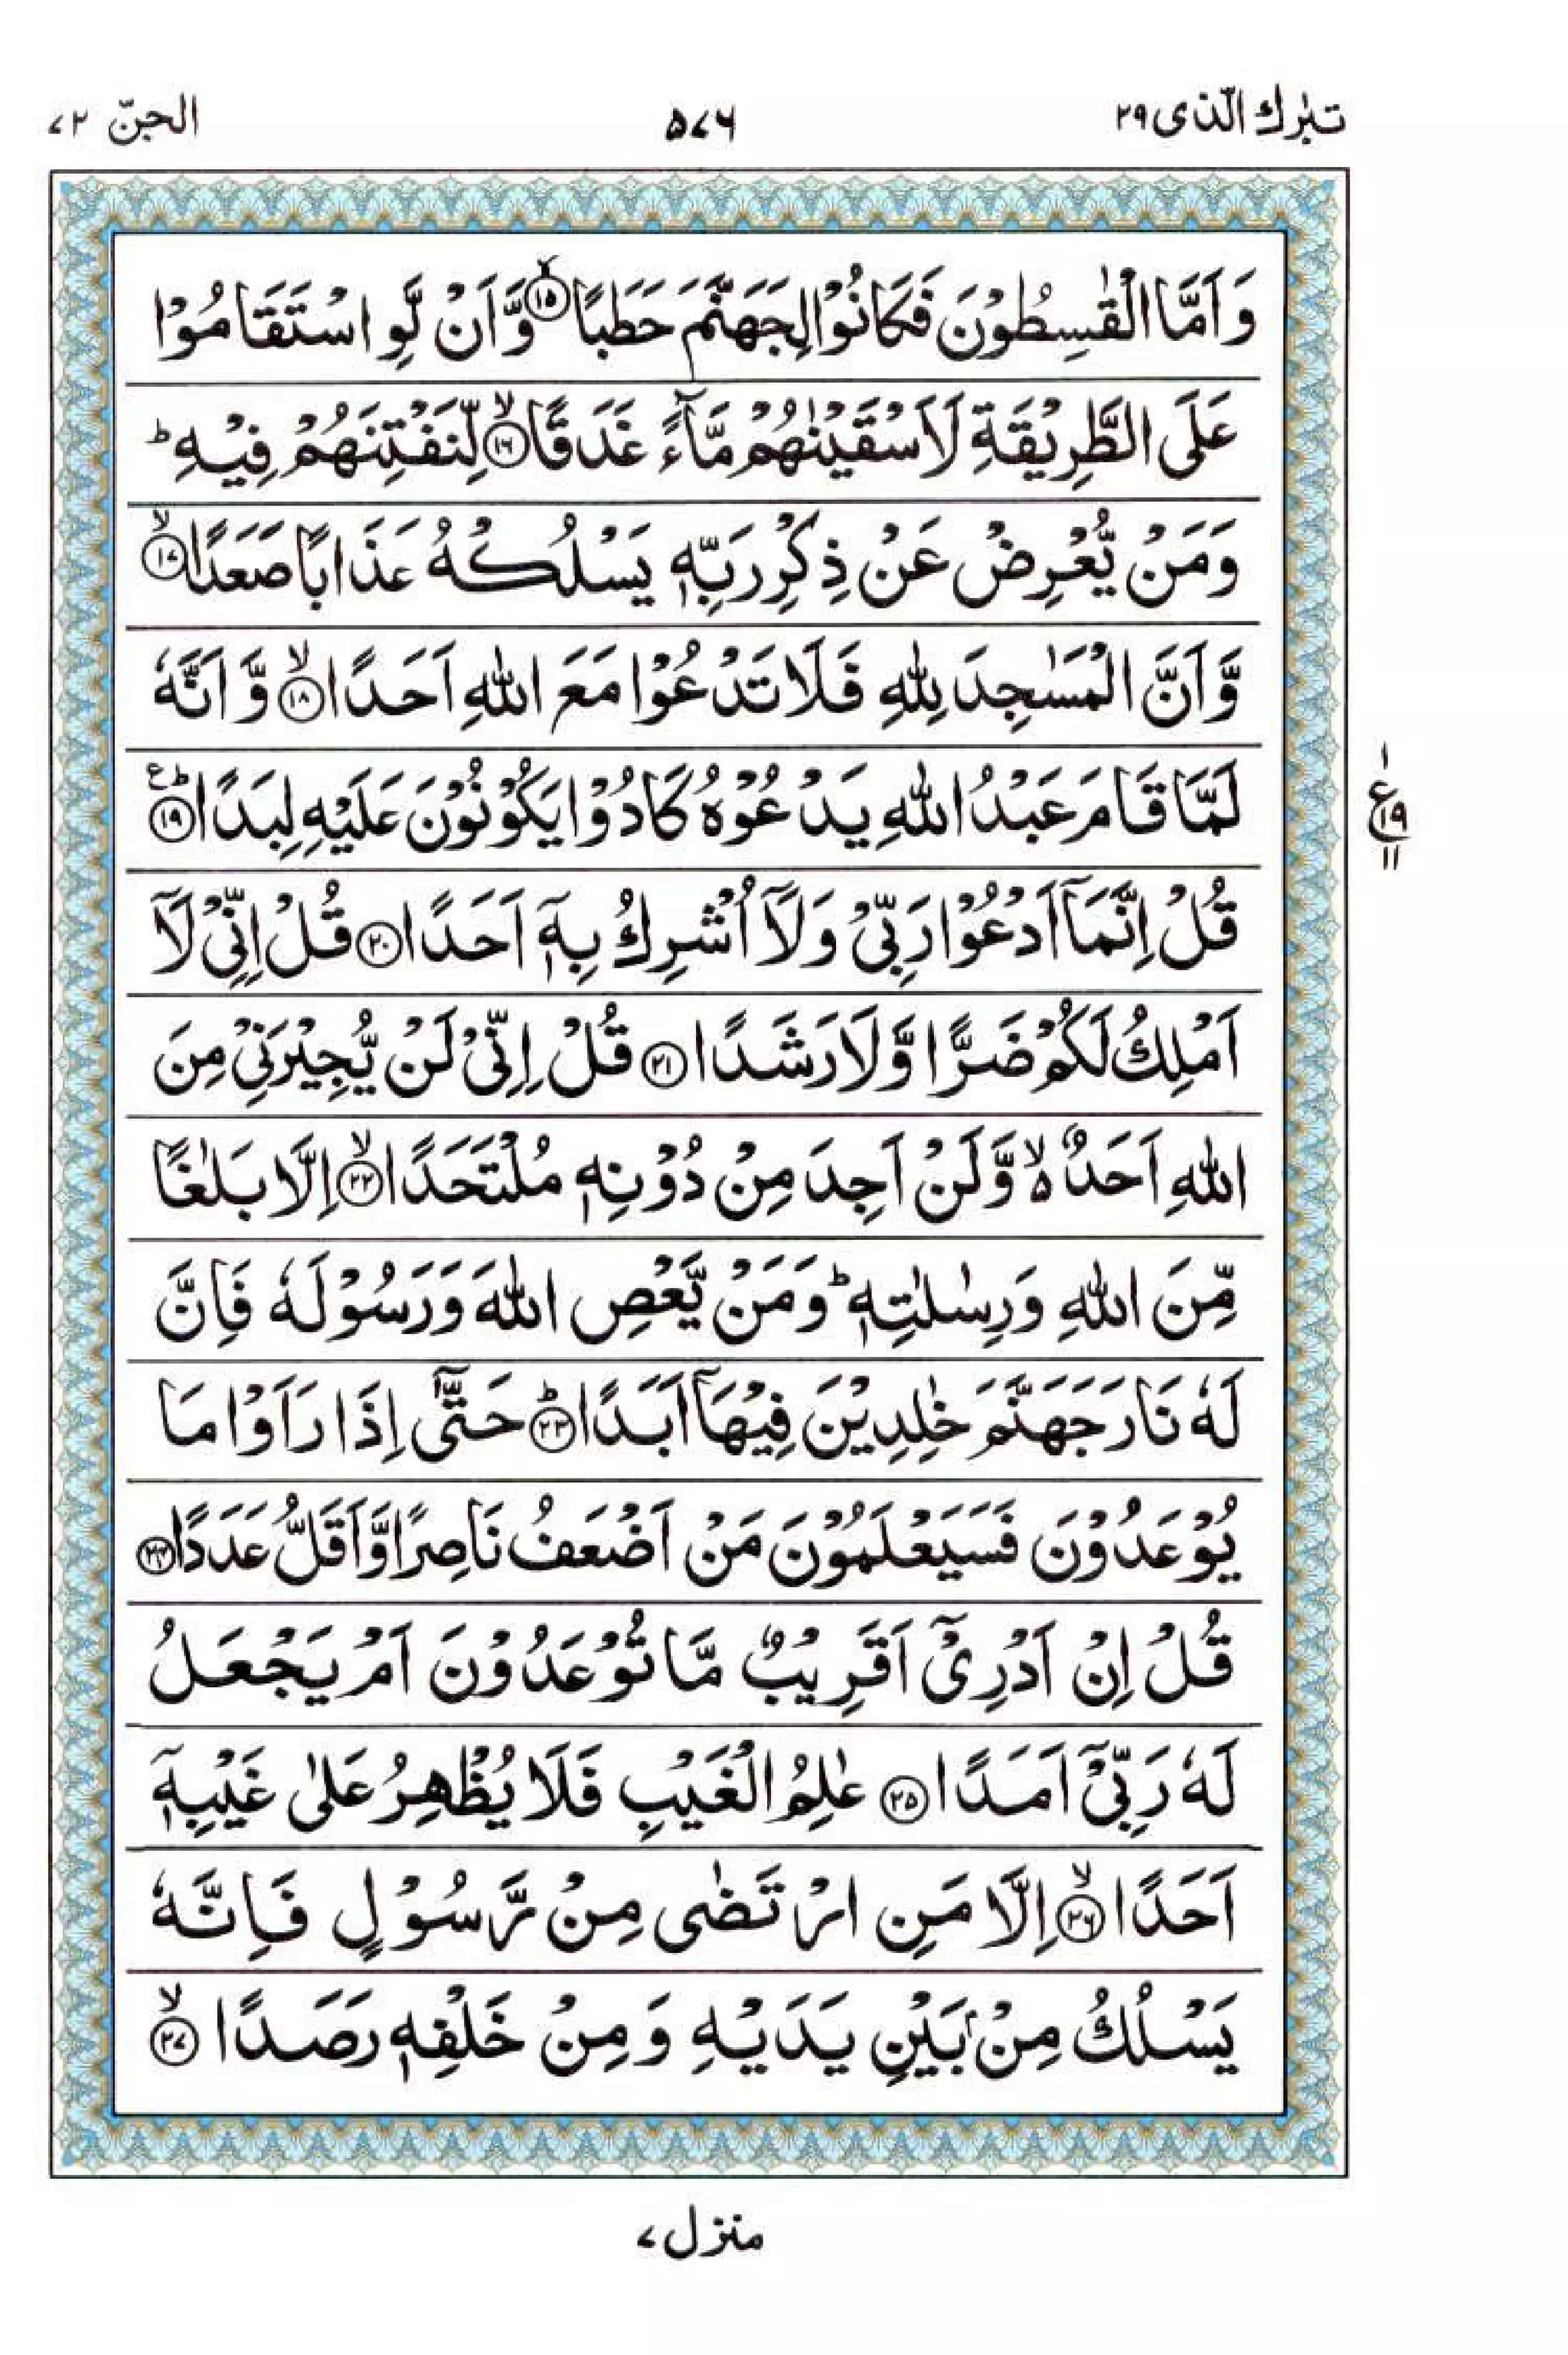 تبٰرك الّذی ۲۹
۵۷۶
الجنّ ۷۲
وَاَمَّا الْقٰسِطُوْنَ فَكَانُوْا لِجَهَنَّمَ حَطَبًا ۙ﴿۱۵﴾ وَّاَنْ لَّوِ اسْتَقَامُوْا
عَلَى الطَّرِيْقَةِ لَاَسْقَيْنٰهُمْ مَّآءً غَدَقًا ۙ﴿۱۶﴾ لِّنَفْتِنَهُمْ فِيْهِ ؕ
وَمَنْ يُّعْرِضْ عَنْ ذِكْرِ رَبِّهٖ يَسْلُكْهُ عَذَابًا صَعَدًا ۙ﴿۱۷﴾
وَّاَنَّ الْمَسٰجِدَ لِلّٰهِ فَلَا تَدْعُوْا مَعَ اللّٰهِ اَحَدًا ۙ﴿۱۸﴾ وَّاَنَّهٗ
لَمَّا قَامَ عَبْدُ اللّٰهِ يَدْعُوْهُ كَادُوْا يَكُوْنُوْنَ عَلَيْهِ لِبَدًا ؕ﴿۱۹﴾ ع
۱
ع ۱۹
۱۱
قُلْ اِنَّمَآ اَدْعُوْا رَبِّىْ وَلَآ اُشْرِكُ بِهٖۤ اَحَدًا ﴿۲۰﴾ قُلْ اِنِّىْ لَآ
اَمْلِكُ لَكُمْ ضَرًّا وَّلَا رَشَدًا ﴿۲۱﴾ قُلْ اِنِّىْ لَنْ يُّجِيْرَنِىْ مِنَ
اللّٰهِ اَحَدٌ ۙ۵ وَّلَنْ اَجِدَ مِنْ دُوْنِهٖ مُلْتَحَدًا ۙ﴿۲۲﴾ اِلَّا بَلٰغًا
مِّنَ اللّٰهِ وَرِسٰلٰتِهٖ ؕ وَمَنْ يَّعْصِ اللّٰهَ وَرَسُوْلَهٗ فَاِنَّ
لَهٗ نَارَ جَهَنَّمَ خٰلِدِيْنَ فِيْهَآ اَبَدًا ؕ﴿۲۳﴾ حَتّٰٓى اِذَا رَاَوْا مَا
يُوْعَدُوْنَ فَسَيَعْلَمُوْنَ مَنْ اَضْعَفُ نَاصِرًا وَّاَقَلُّ عَدَدًا ﴿۲۴﴾
قُلْ اِنْ اَدْرِىْۤ اَقَرِيْبٌ مَّا تُوْعَدُوْنَ اَمْ يَجْعَلُ
لَهٗ رَبِّىْۤ اَمَدًا ﴿۲۵﴾ عٰلِمُ الْغَيْبِ فَلَا يُظْهِرُ عَلٰى غَيْبِهٖۤ
اَحَدًا ۙ﴿۲۶﴾ اِلَّا مَنِ ارْتَضٰى مِنْ رَّسُوْلٍ فَاِنَّهٗ
يَسْلُكُ مِنْۢ بَيْنِ يَدَيْهِ وَمِنْ خَلْفِهٖ رَصَدًا ۙ﴿۲۷﴾
منزل ۷